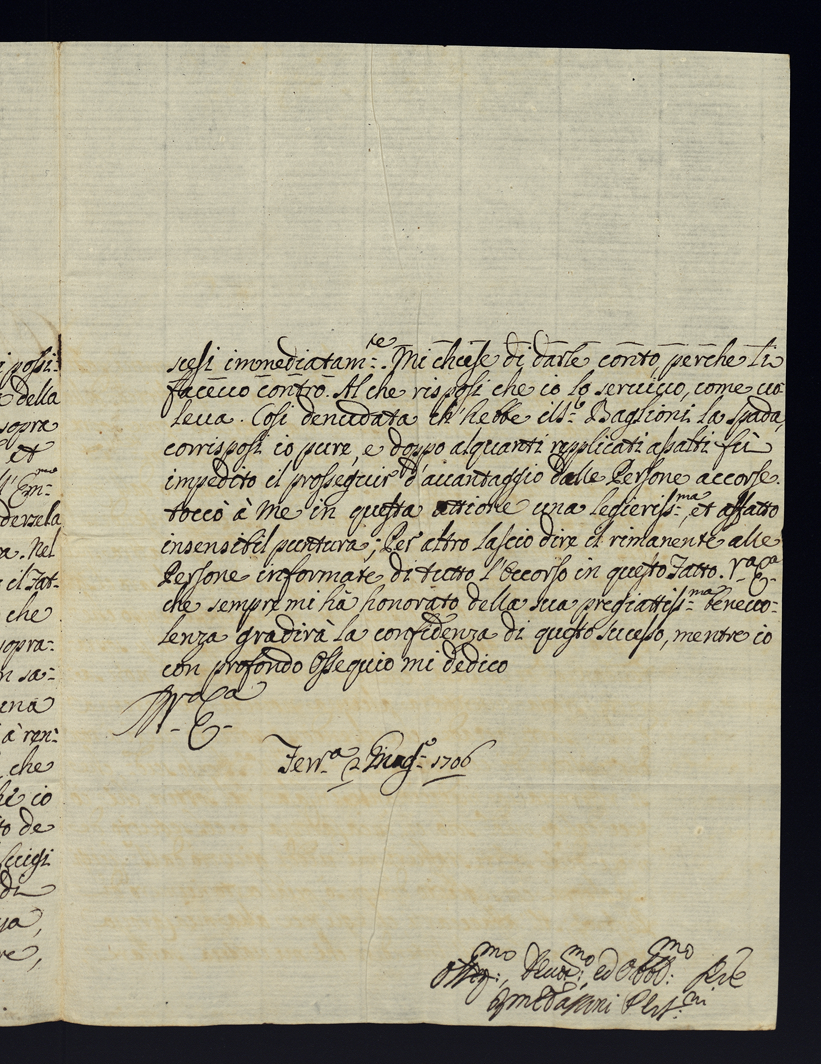 i possi:
e della
sopra
et
Em:mo
derzela
a. Nel
il Fat-
che
sopra:
n sa:
ena
à ren:
che
he io
to de
Luigi
di
re,
scesi immediatam:te. Mi chiese di darle conto perche li
facevo contro. Al che risposi che io lo servivo, come vo
leva. Cosi denudata ch'hebbe il S:r Baglioni la spada,
corrisposi io pure, e doppo alquanti repplicati assalti fù
impedito il proseguir d'avantaggio dalle Persone accorse.
toccò à me in questa attione una legieriss:ma, et affatto
insensibil puntura; Per altro lascio dire il rimanente alle
Persone informate di tutto l'Occorso in questo Fatto. V:ra E:a
che sempre mi hà honorato della sua pregiatiss:ma benevo-
lenza gradirà la confidenza di questo sucesso, mentre io
con profondo Ossequio mi dedico
V:ra E:a
Ferr:a 12 Mag:o 1706
mo Devot:mo ed Obbl:mo